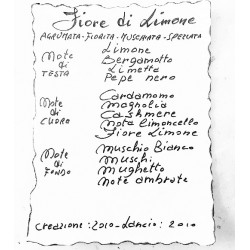 Fiore di Limone
AGRUMATA - FIORITA - MUSCHIATA - SPEZIATA
Note di TESTA
Limone
Bergamotto
Limetta
Pepe nero
Note di CUORE
Cardamomo
Magnolia
Cashmere
Nota limoncello
Fiore Limone
Note di FONDO
Muschio Bianco
Muschi
Mughetto
Note ambrate
creazione: 2010 - Lancio: 2010